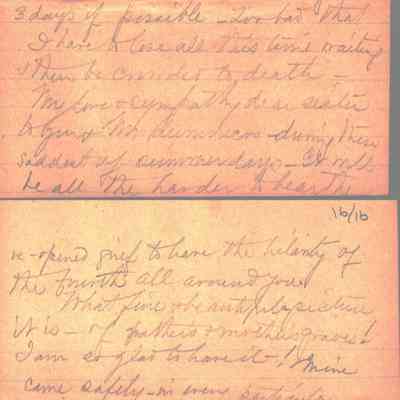 3 days if possible - Too bad that
I have to lose all this time waiting
& then be crowded to death -
My love & sympathy dear sister
to you & Mr. during these
saddest of summer days - It will
be all the harder to bear the
16/16
re-opened grief to have the hilarity of
the fourth all around you
What fine & beautiful picture
it is - of father's & mother's graves!
I am so glad to have it - ! Mine
came safely - in every